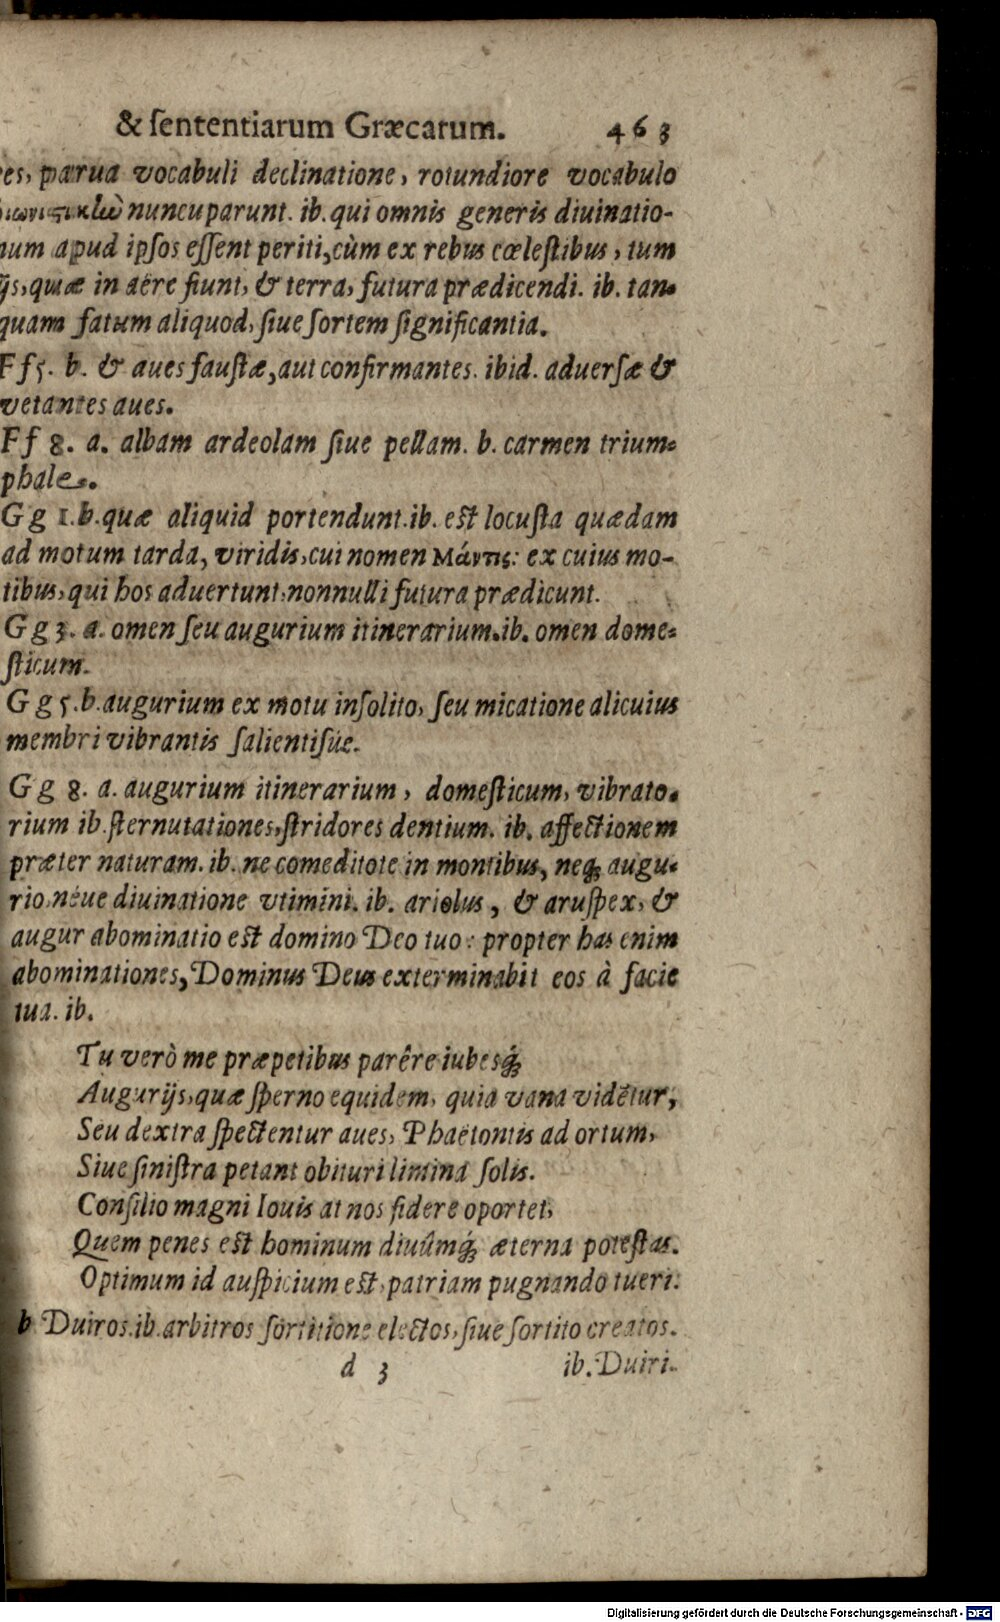 & ſententiarum Græcarum. 463
es, parua vocabuli declinatione, rotundiore vocabulo
nuncuparunt. ib. qui omnis generis diuinatio-
num apud ipſos eſſent periti, cùm ex rebus cœleſtibus, tum
ijs, quæ in aëre fiunt, & terra, futura prædicendi. ib. tan-
quam fatum aliquod, ſiue ſortem ſignificantia.
Ff 5. b. & aues fauſtæ, aut confirmantes. ibid. aduerſæ &
vetantes aues.
Ff 8. a. albam ardeolam ſiue pellam. b. carmen trium-
phale.
Gg 1. b. quæ aliquid portendunt. ib. eſt locuſta quædam
ad motum tarda, viridis, cui nomen Μάντις: ex cuius mo-
tibus, qui hos aduertunt, nonnulli futura prædicunt.
Gg 3. a. omen ſeu augurium itinerarium. ib. omen dome-
ſticum.
Gg 5. b. augurium ex motu inſolito, ſeu micatione alicuius
membri vibrantis ſalientiſúe.
Gg 8. a. augurium itinerarium, domeſticum, vibrato-
rium ib. ſternutationes, ſtridores dentium. ib. affectionem
præter naturam. ib. ne comeditote in montibus, neq; augu-
rio, néue diuinatione vtimini. ib. ariolus, & aruſpex, &
augur abominatio eſt domino Deo tuo: propter has enim
abominationes, Dominus Deus exterminabit eos à facie
tua. ib.
Tu verò me præpetibus parêre iubesq́;
Augurijs, quæ ſperno equidem, quia vana vidẽtur,
Seu dextra ſpectentur aues, Phaëtontis ad ortum,
Siue ſiniſtra petant obituri limina ſolis.
Conſilio magni Iouis at nos fidere oportet,
Quem penes eſt hominum diuûmq́; æterna poteſtas.
Optimum id auſpicium eſt, patriam pugnando tueri.
b Duiros. ib. arbitros ſortitione electos, ſiue ſortito creatos.
d 3 ib. Duiri-
Digitalisierung gefördert durch die Deutsche Forschungsgemeinschaft - DFG